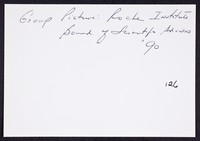 Group Picture: Roche Institute
Board of Scientific Advisors
'90
126